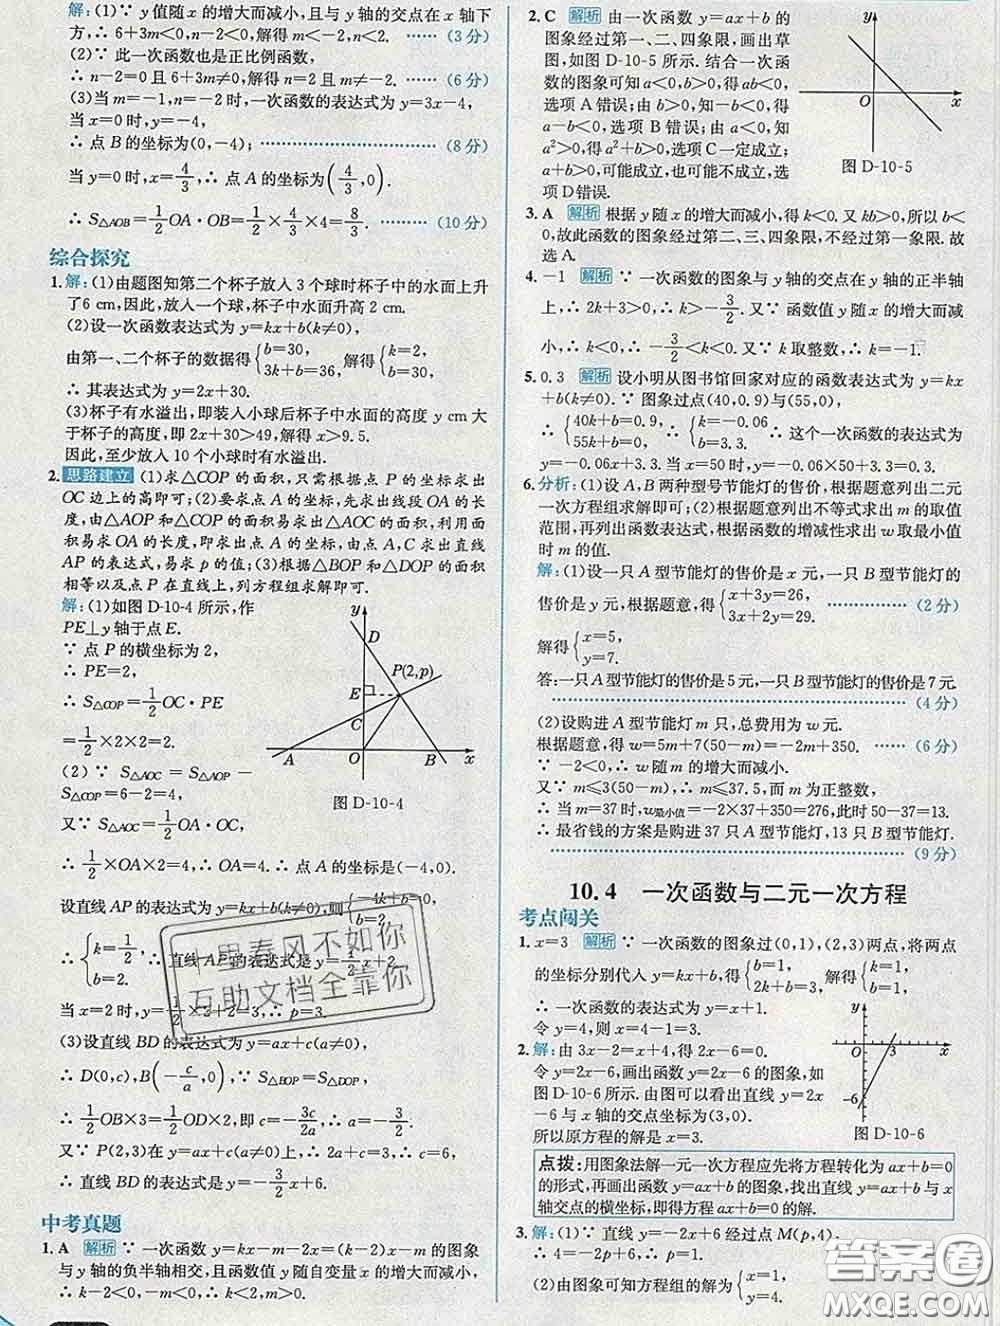 解:(1)∵ y值随x的增大而减小,且与y轴的交点在x轴下
方,∴ 6+3m<0,n-2<0,解得m<-2,n<2. ……(3分)
(2)∵ 此一次函数也是正比例函数,
∴ n-2=0且6+3m≠0,解得n=2且m≠-2. ……(6分)
(3)当m=-1,n=-2时,一次函数的表达式为y=3x-4,
当x=0时,y=-4,
∴ 点B的坐标为(0,-4); ……(8分)
当y=0时,x=4/3,∴ 点A的坐标为(4/3,0).
∴ S△AOB=1/2 OA·OB=1/2×4/3×4=8/3. ……(10分)
综合探究
1.解:(1)由题图知第二个杯子放入3个球时杯子中的水面上升
了6 cm,因此,放入一个球,杯子中水面升高2 cm.
(2)设一次函数表达式为y=kx+b(k≠0),
由第一、二个杯子的数据得{b=30, 3k+b=36, 解得{k=2, b=30.
∴ 其表达式为y=2x+30.
(3)杯子有水溢出,即装入小球后杯子中水面的高度y cm大
于杯子的高度,即2x+30>49,解得x>9.5.
因此,至少放入10个小球时有水溢出.
2.思路建立 (1)求△COP的面积,只需根据点P的坐标求出
OC边上的高即可;(2)要求点A的坐标,先求出线段OA的长
度,由△AOP和△COP的面积易求出△AOC的面积,利用面
积易求OA的长度,即求出点A的坐标,由点A,C求出直线
AP的表达式,易求p的值;(3)根据△BOP和△DOP的面积
相等以及点P在直线上,列方程组求解即可.
解:(1)如图D-10-4所示,作
PE⊥y轴于点E.
∵ 点P的横坐标为2,
∴ PE=2.
∴ S△COP=1/2 OC·PE
=1/2×2×2=2.
(2)∵ S△AOC=S△AOP-
S△COP=6-2=4,
又∵ S△AOC=1/2 OA·OC,
y
D
P(2,p)
E
C
A
O
B
x
图D-10-4
∴ 1/2×OA×2=4,∴ OA=4.∴ 点A的坐标是(-4,0).
设直线AP的表达式为y=kx+b(k≠0),则{-4k+b=0, b=2,
∴ {k=1/2, b=2. ∴ 直线AP的表达式是y=1/2x+2.
当x=2时,y=1/2×2+2=3,∴ p=3.
(3)设直线BD的表达式为y=ax+c(a≠0),
∴ D(0,c),B(-c/a,0),∵ S△BOP=S△DOP,
∴ 1/2 OB×3=1/2 OD×2,即c=-3c/2a,∴ a=-3/2.
又∵ P(2,3)在y=ax+c(a≠0)上,∴ 2a+c=3,∴ c=6,
∴ 直线BD的表达式是y=-3/2x+6.
中考真题
1.A 解析 ∵ 一次函数y=kx-m-2x=(k-2)x-m的图象
与y轴的负半轴相交,且函数值y随自变量x的增大而减小,
∴ k-2<0,-m<0,∴ k<2,m>0.故选A.
2.C 解析 由一次函数y=ax+b的
图象经过第一、二、四象限,画出草
图,如图D-10-5所示.结合一次函
数的图象可知a<0,b>0,则ab<0,
选项A错误;由b>0,知-b<0,所以
a-b<0,选项B错误;由a<0,知
a²>0,所以a²+b>0,选项C一定成立;
a+b>0,可能成立,也可能不成立,选
项D错误.
y
O
x
图D-10-5
3.A 解析 根据y随x的增大而减小,得k<0.又kb>0,所以b<
0,故此函数的图象经过第二、三、四象限,不经过第一象限.故
选A.
4.-1 解析 ∵ 一次函数的图象与y轴的交点在y轴的正半轴
上,∴ 2k+3>0,∴ k>-3/2.又∵ 函数值y随x的增大而减
小,∴ k<0,∴ -3/2<k<0.又∵ k取整数,∴ k=-1.
5.0.3 解析 设小明从图书馆回家对应的函数表达式为y=kx
+b(k≠0).∵ 图象过点(40,0.9)与(55,0),
∴ {40k+b=0.9, 55k+b=0, ∴ {k=-0.06, b=3.3. ∴ 这个一次函数的表达式为y
=-0.06x+3.3.当x=50时,y=-0.06×50+3.3=0.3.
6.分析:(1)设A,B两种型号节能灯的售价,根据题意列出二元
一次方程组求解即可;(2)根据题意列出不等式求出m的取值
范围,再列出函数表达式,根据函数的增减性求出w取最小值
时m的值.
解:(1)设一只A型节能灯的售价是x元,一只B型节能灯的
售价是y元,根据题意,得{x+3y=26, 3x+2y=29. ……(2分)
解得{x=5, y=7.
答:一只A型节能灯的售价是5元,一只B型节能灯的售价是7元.
……(4分)
(2)设购进A型节能灯m只,总费用为w元.
根据题意,得w=5m+7(50-m)=-2m+350. ……(6分)
∵ -2<0,∴ w随m的增大而减小.
又∵ m≤3(50-m),∴ m≤37.5,而m为正整数,
∴ 当m=37时,w最小值=-2×37+350=276,此时50-37=13.
∴ 最省钱的方案是购进37只A型节能灯,13只B型节能灯.
……(9分)
10.4 一次函数与二元一次方程
考点闯关
1.x=3 解析 ∵ 一次函数的图象过(0,1),(2,3)两点,将两点
的坐标分别代入y=kx+b,得{b=1, 2k+b=3, 解得{k=1, b=1.
∴ 一次函数的表达式为y=x+1.
令y=4,则x=3.
2.解:由3x-2=x+4,得2x-6=0.
令y=2x-6,画出函数y=2x-6的图象,如
图D-10-6所示.由图可以看出直线y=2x
-6与x轴的交点坐标为(3,0).
所以原方程的解是x=3.
y
O
3
x
-6
图D-10-6
点拨:用图象法解一元一次方程应先将方程转化为ax+b=0
的形式,再画出函数y=ax+b的图象,找出直线y=ax+b与x
轴交点的横坐标,即得方程ax+b=0的解.
3.解:(1)∵ 直线y=-2x+6经过点M(p,4),
∴ 4=-2p+6,∴ p=1.
(2)由图象可知方程组的解为{x=1, y=4.
十里春风不如你
互助文档全靠你
答案圈
MXQE.COM